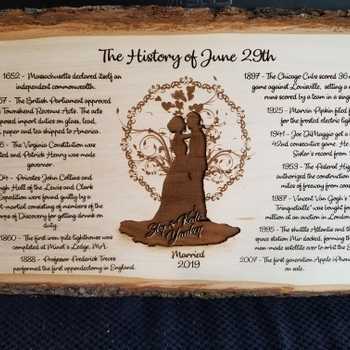 The History of June 29th
1652 - Massachusetts declared itself an
independent commonwealth.
The British Parliament approved
Townshend Revenue Acts. The acts
import duties on glass, lead,
paper and tea shipped to America.
The Virginia Constitution was
and Patrick Henry was made
governor.
Privates John Collins and
Hugh Hall of the Lewis and Clark
Expedition were found guilty by a
court-martial consisting of members of the
Corps of Discovery for getting drunk on
duty.
1860 - The first iron pile lighthouse was
completed at Minot's Ledge, MA.
1888 - Professor Frederick Treves
performed the first appendectomy in England.
Married
2019
1897 - The Chicago Cubs scored 36
game against Louisville, setting a
runs scored by a team in a single
1925 - Marvin Pipkin filed
for the frosted electric
1941 - Joe DiMaggio got a
42nd consecutive game. He
Sisler's record from
1953 - The Federal High
authorized the construction
miles of freeway from
1987 - Vincent Van Gogh's
was bought for
million at an auction in London
1995 - The shuttle Atlantis and the
space station Mir docked, forming the
man-made satellite ever to orbit the
2007 - The first generation Apple iPhone
on sale.